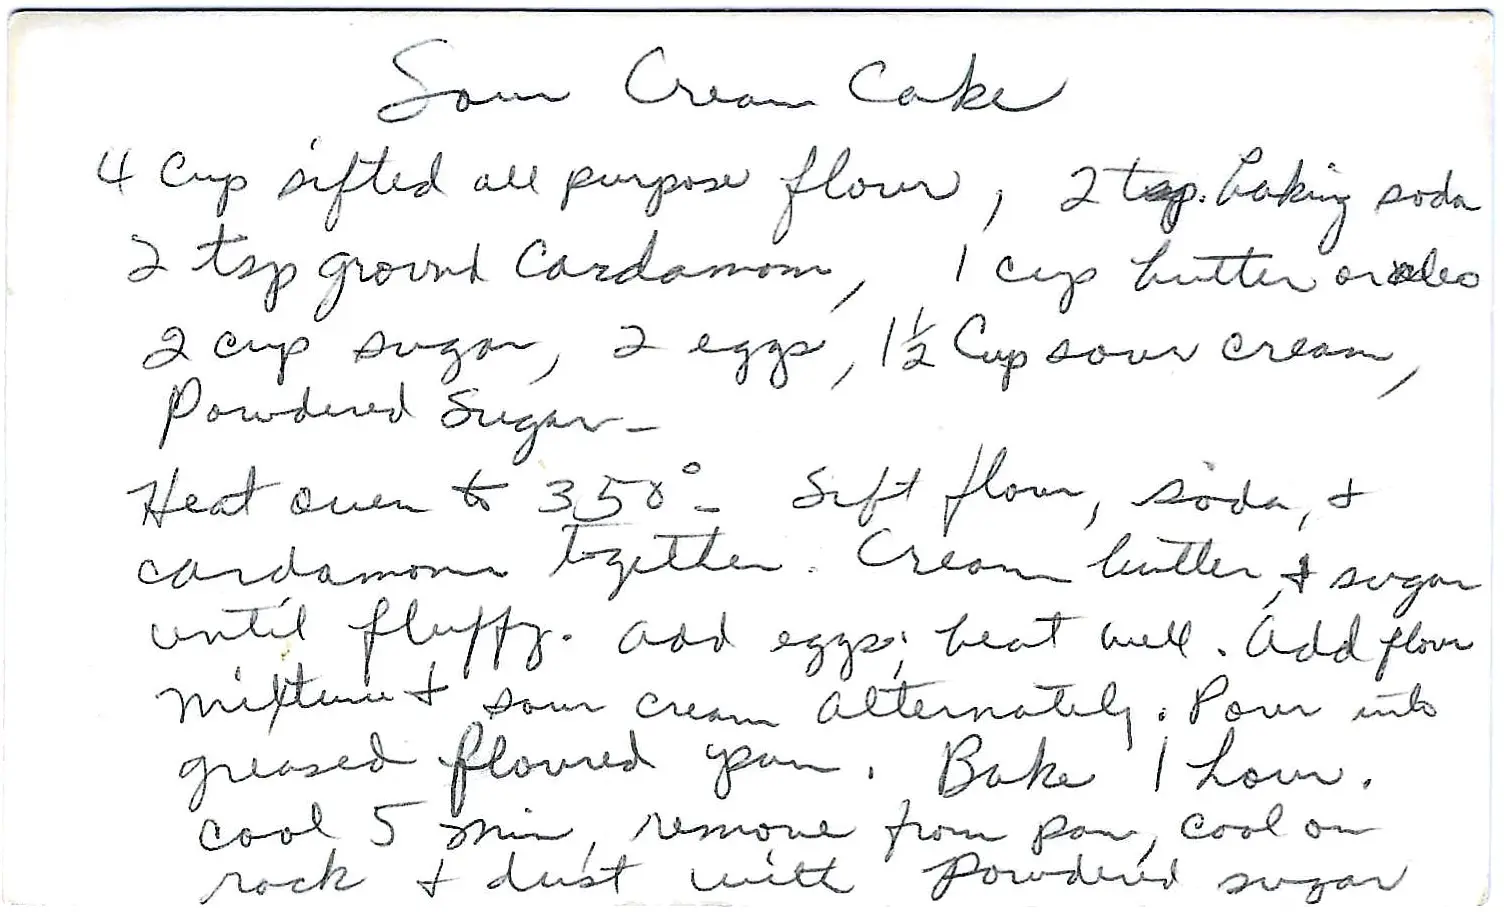 Sour Cream Cake
4 Cup sifted all purpose flour, 2 tsp. baking soda
2 tsp ground Cardamom, 1 cup butter or oleo
2 cup sugar, 2 eggs, 1½ Cup sour cream,
Powdered Sugar-
Heat oven to 350°- Sift flour, soda, &
cardamom together. Cream butter, & sugar
until fluffy. Add eggs; beat well. Add flour
mixture & sour cream alternately. Pour into
greased floured pan. Bake 1 hour.
Cool 5 min, remove from pan, cool on
rack & dust with Powdered sugar